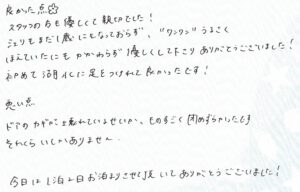 良かった点
スタッフの方も優しくて親切でした!
シェリもまだ1歳にもなっておらず、"ワンワン"うるさく
ほえていたにもかかわらず優しくして下さりありがとうございました!
初めて湖に足をつけれて良かったです!
悪い点
ドアのカギが壊れていませんか、ものすごく閉めずらかったです
それくらいしかありません。
今日は1泊2日お泊りさせて頂いてありがとうございました!